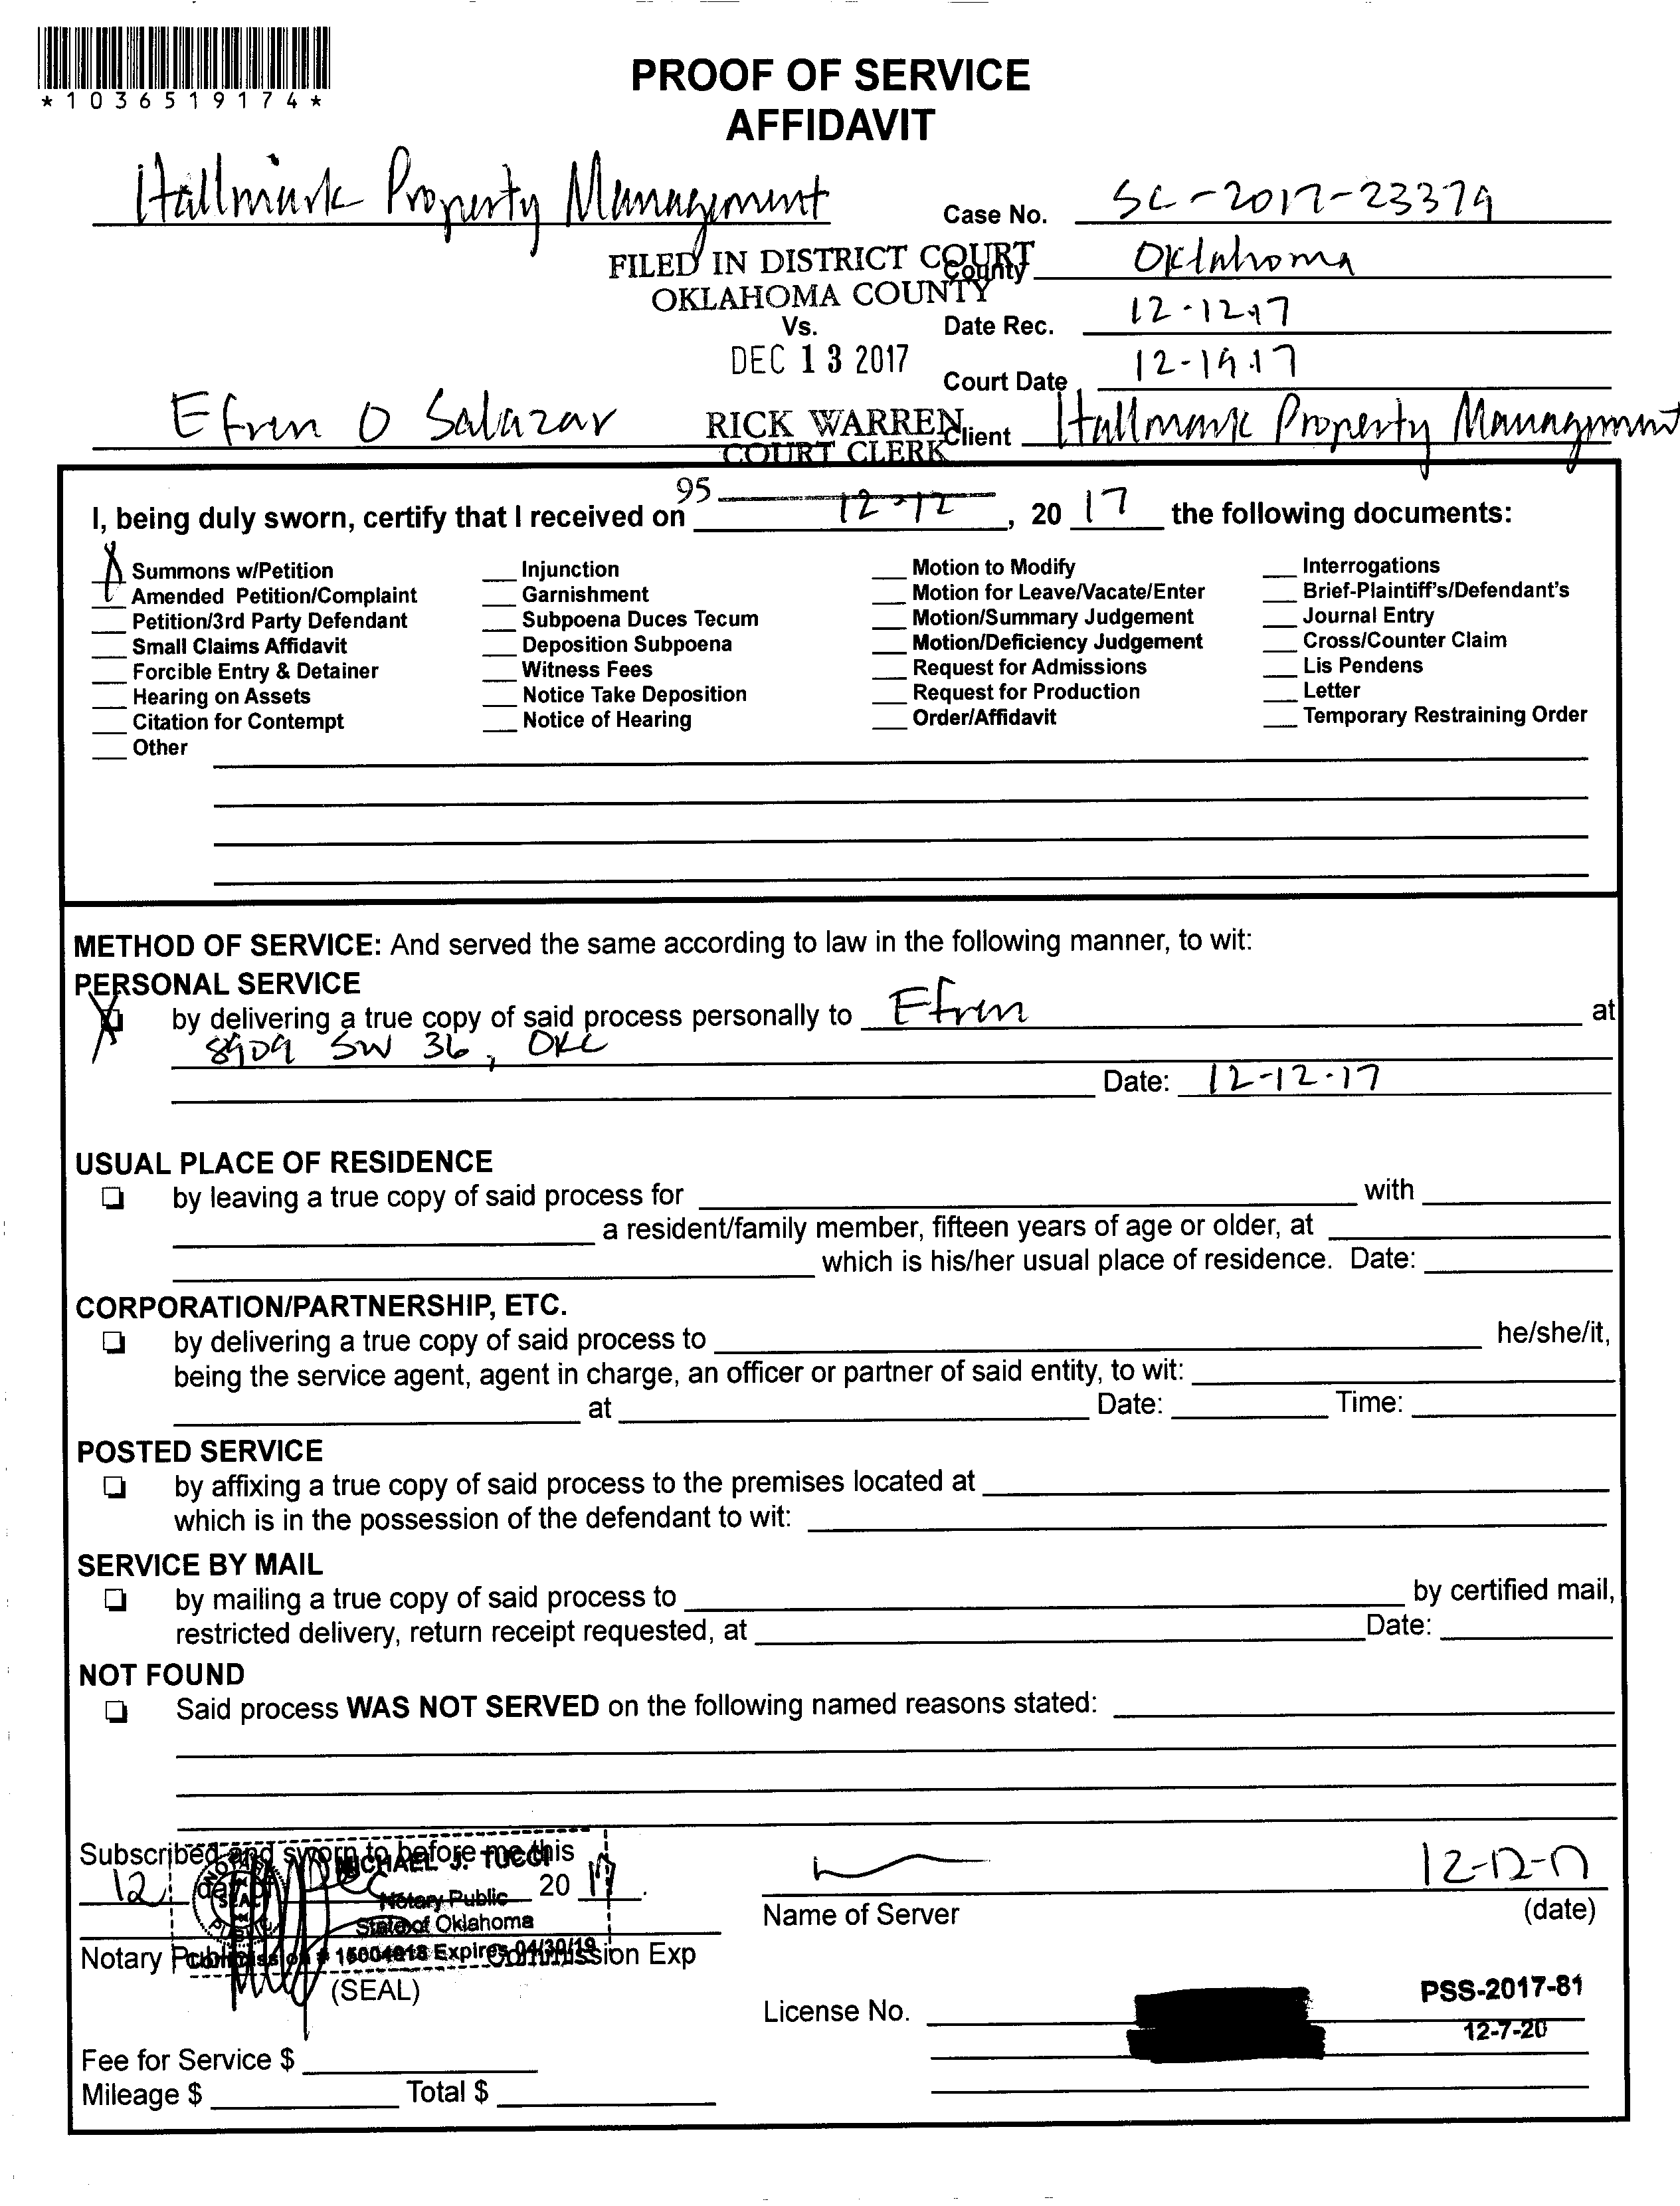 *1036519174*
PROOF OF SERVICE
AFFIDAVIT
Hallmark Property Management
Case No. SC-2017-23379
FILED IN DISTRICT COURT
OKLAHOMA COUNTY
County Oklahoma
Vs.
Date Rec. 12-12-17
DEC 13 2017
Court Date 12-19-17
Efren O Salazar
RICK WARREN
COURT CLERK
Client Hallmark Property Management
95
I, being duly sworn, certify that I received on 12-12, 20 17 the following documents:
Summons w/Petition
Amended Petition/Complaint
Petition/3rd Party Defendant
Small Claims Affidavit
Forcible Entry & Detainer
Hearing on Assets
Citation for Contempt
Other
Injunction
Garnishment
Subpoena Duces Tecum
Deposition Subpoena
Witness Fees
Notice Take Deposition
Notice of Hearing
Motion to Modify
Motion for Leave/Vacate/Enter
Motion/Summary Judgement
Motion/Deficiency Judgement
Request for Admissions
Request for Production
Order/Affidavit
Interrogations
Brief-Plaintiff's/Defendant's
Journal Entry
Cross/Counter Claim
Lis Pendens
Letter
Temporary Restraining Order
METHOD OF SERVICE: And served the same according to law in the following manner, to wit:
PERSONAL SERVICE
by delivering a true copy of said process personally to Efren at
8909 SW 36, OKC
Date: 12-12-17
USUAL PLACE OF RESIDENCE
by leaving a true copy of said process for with
a resident/family member, fifteen years of age or older, at
which is his/her usual place of residence. Date:
CORPORATION/PARTNERSHIP, ETC.
by delivering a true copy of said process to he/she/it,
being the service agent, agent in charge, an officer or partner of said entity, to wit:
at Date: Time:
POSTED SERVICE
by affixing a true copy of said process to the premises located at
which is in the possession of the defendant to wit:
SERVICE BY MAIL
by mailing a true copy of said process to by certified mail,
restricted delivery, return receipt requested, at Date:
NOT FOUND
Said process WAS NOT SERVED on the following named reasons stated:
Subscribed and sworn to before me this
12 day of Dec 20 17.
MICHAEL J. TUCCI
Notary Public
State of Oklahoma
Commission # 15004018 Expires 04/30/19
Notary Public Commission Exp
(SEAL)
12-12-17
Name of Server (date)
License No. PSS-2017-81
12-7-20
Fee for Service $
Mileage $ Total $